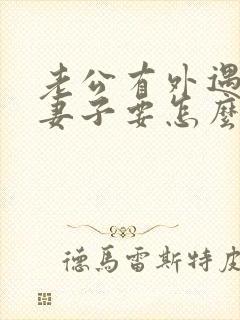 老公有外遇
妻子要怎麼
德馬雷斯特皮